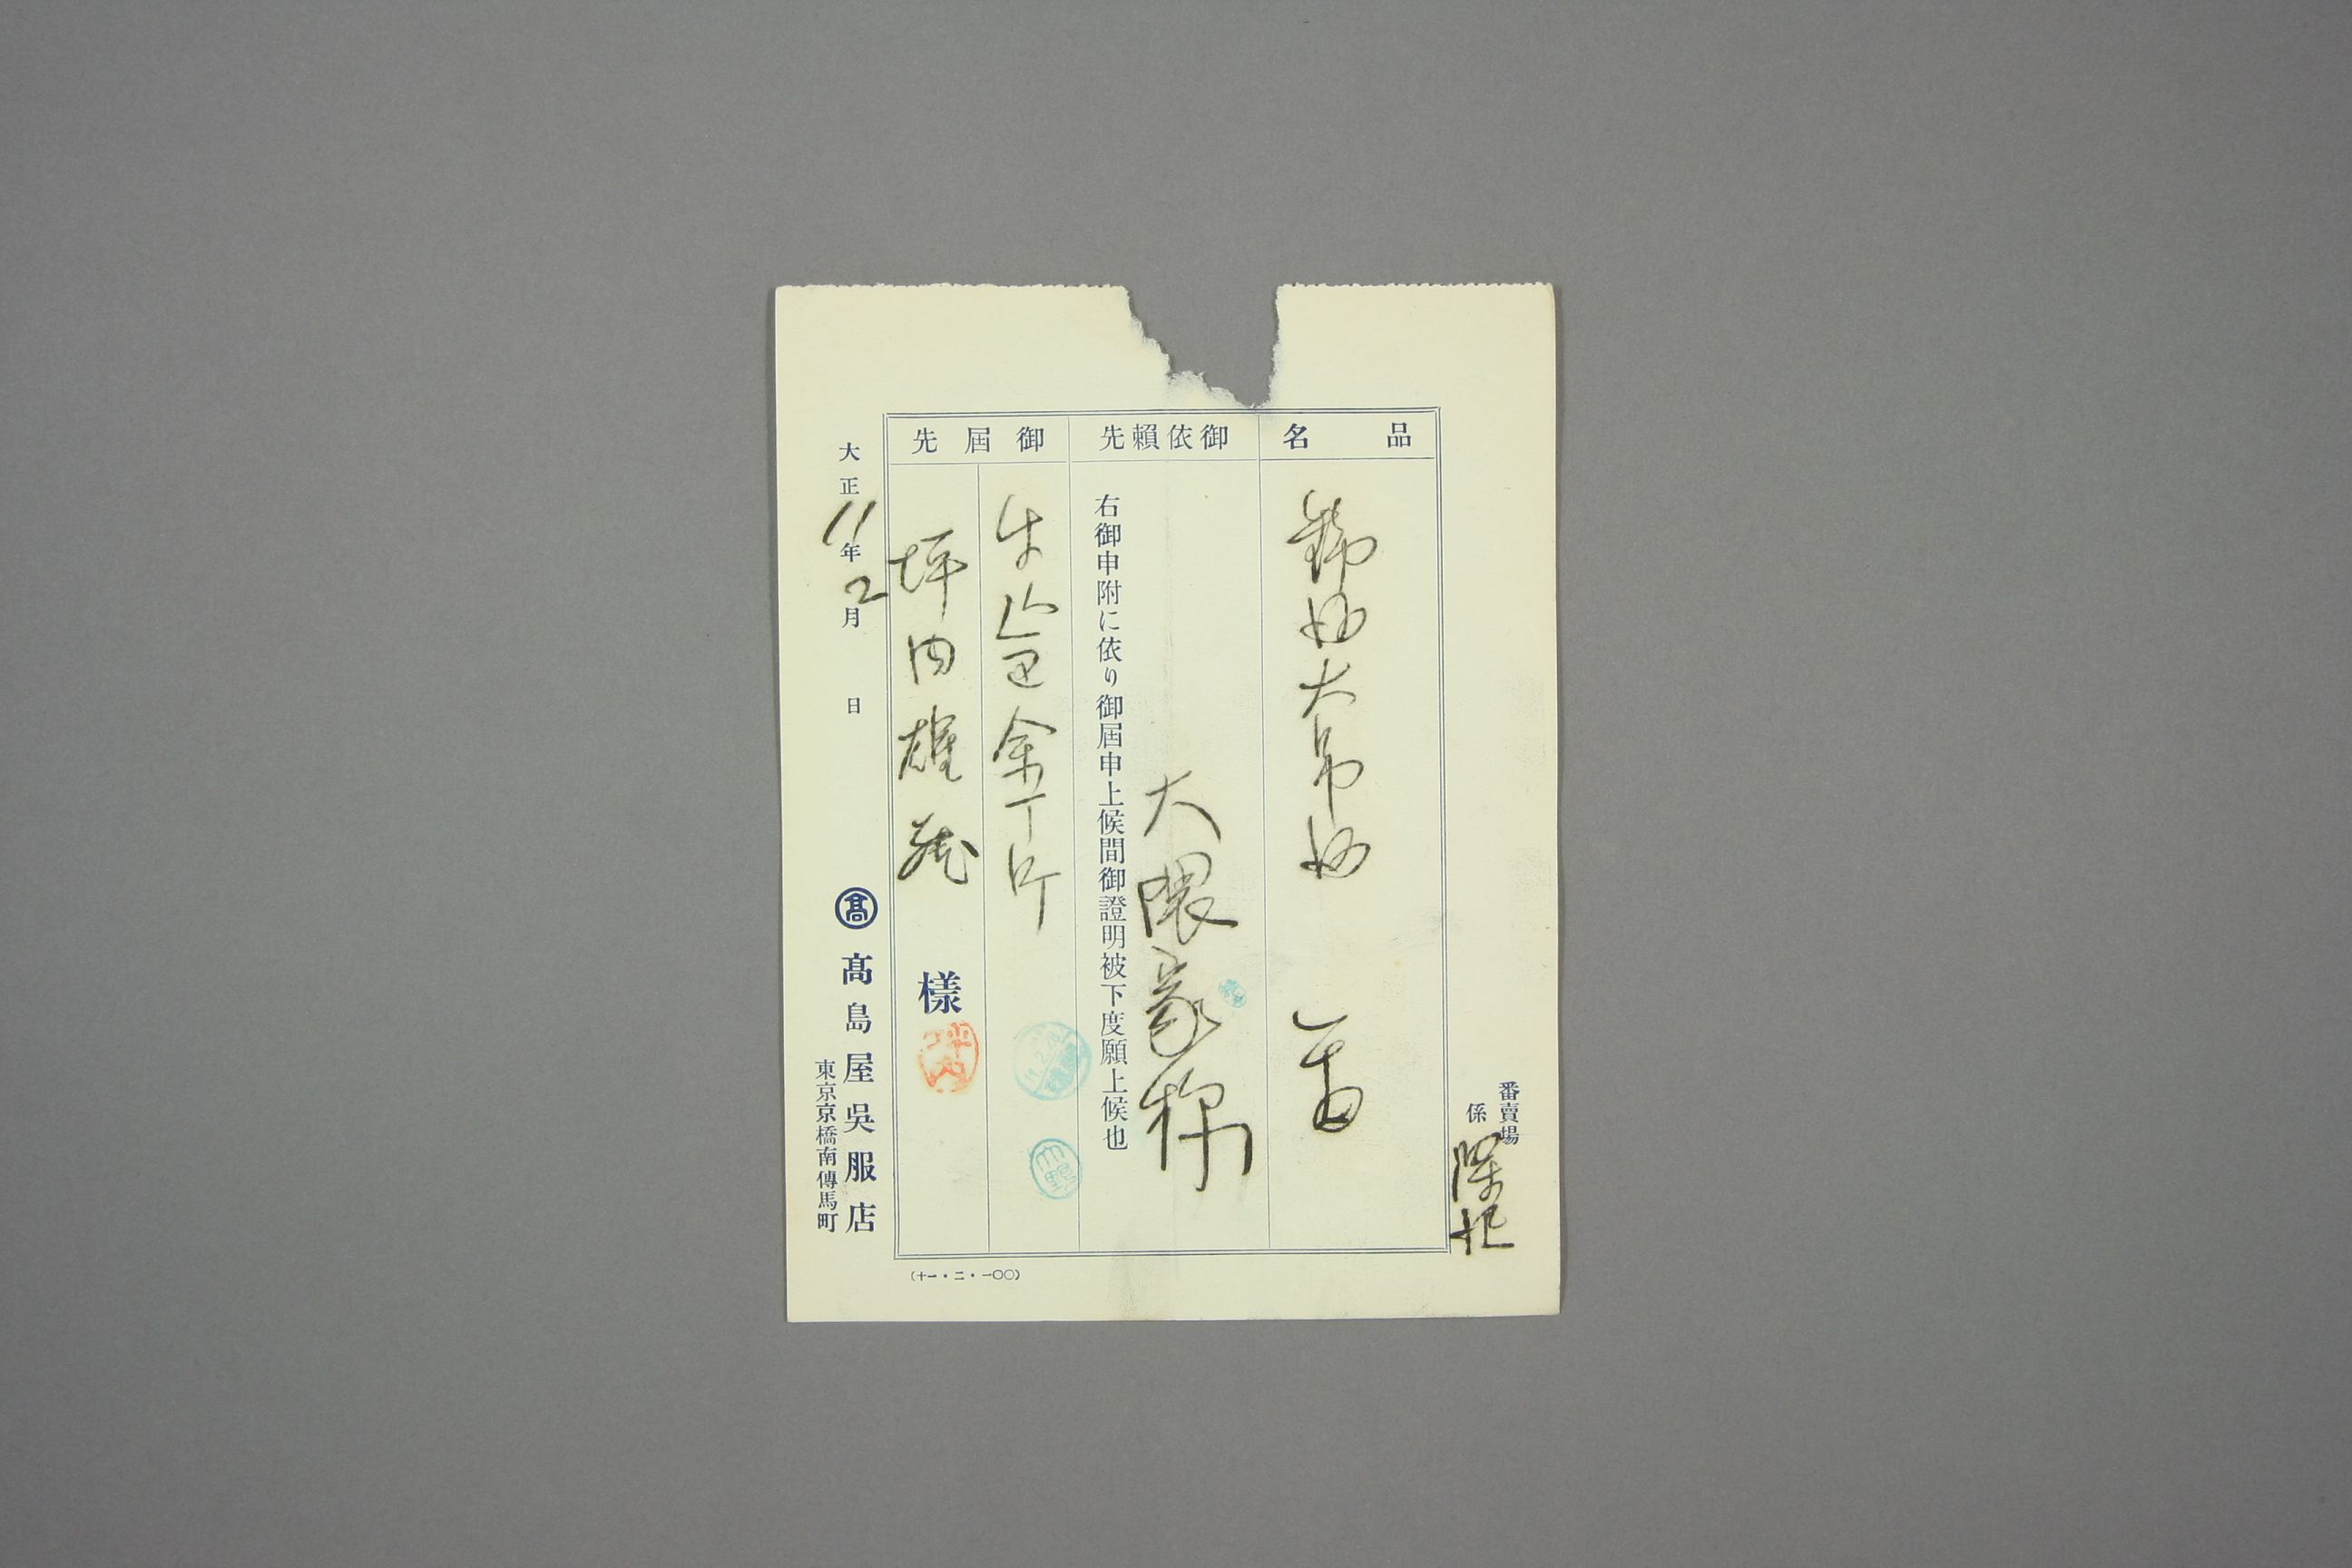 番賣場
係
品名
錦紗大帛紗
御依賴先
大隈家様
右御申附に依り御屆申上候間御證明被下度願上候也
御屆先
牛込区余丁町
坪内雄蔵 樣
坪内
大正11年2月 日
髙 髙島屋吳服店
東京京橋南傳馬町
(十一・二・一〇〇)